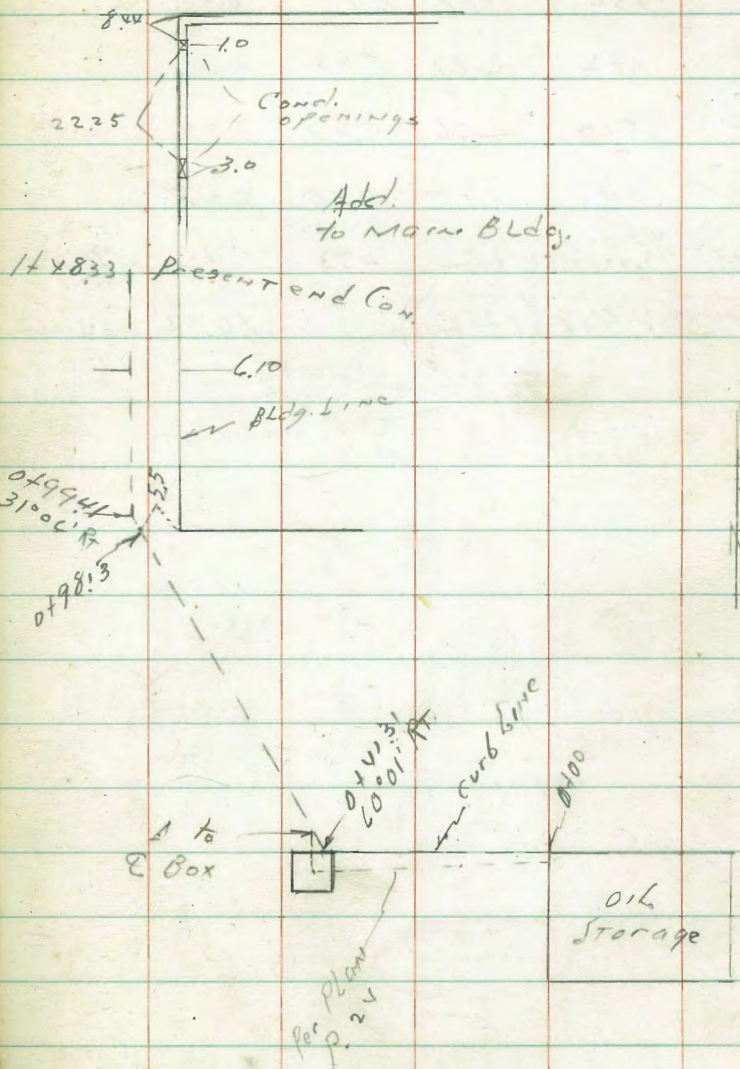 8.44
1.0
22.25
Cond.
openings
3.0
Add.
to Main BLdg.
1+48.33
Present end Con.
6.10
Bldg. Line
0+99.41
31°06' Rt
.55
0+98.3
0+41.31
60°01' Rt.
Curb Line
0+00
to
℄ Box
Oil
Storage
Per Plan
P. 24